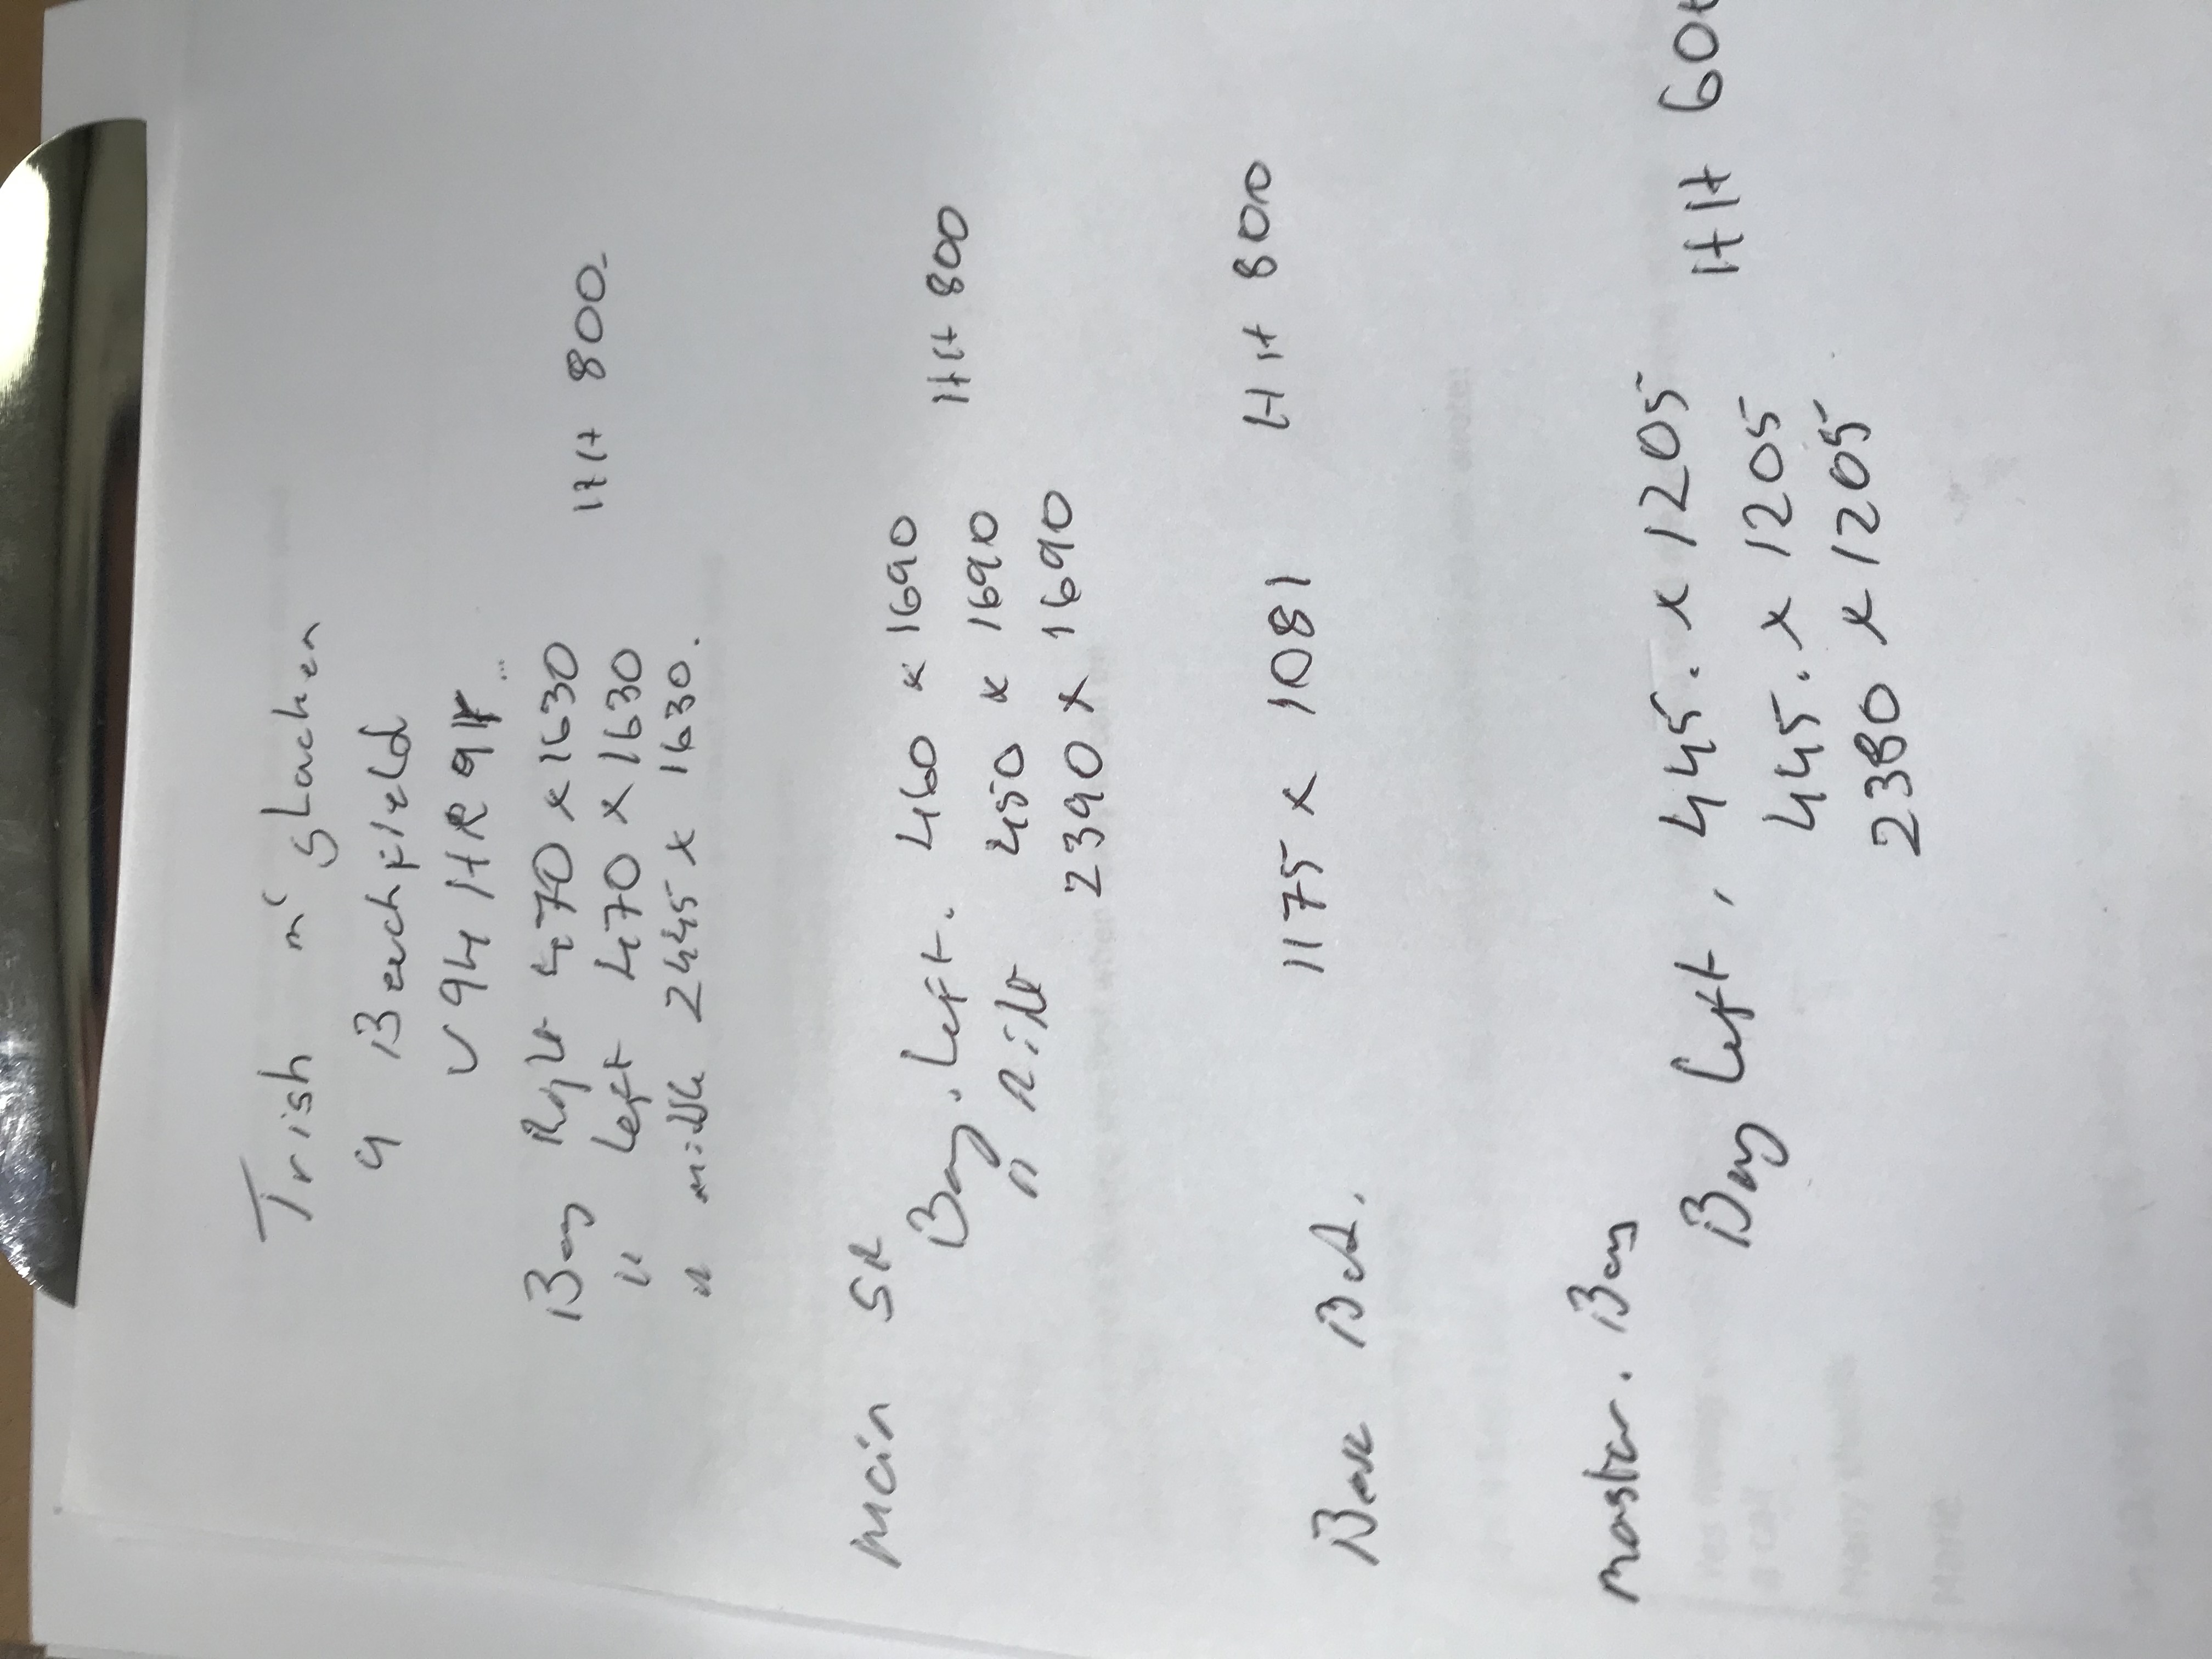 Trish Mc Slacken
9 Beechfield
V94 HR9
Bay Right 470 x 1630 H H 800
" Left 470 x 1630
" middle 2445 x 1630.
Main SR
Bay. Left. 460 x 1690 H H 800
" Right 450 x 1690
2390 x 1690
Back Bed. 1175 x 1081 H H 800
Master. Bay
Bay Left, 445. x 1205 H H 600
445. x 1205
2380 x 1205